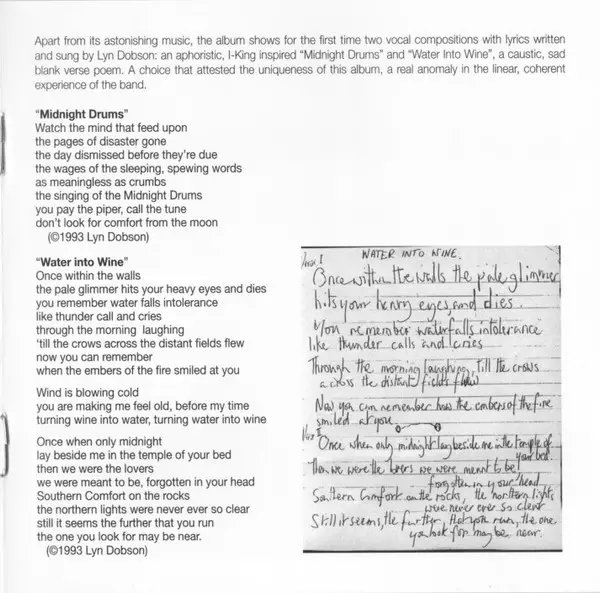 Apart from its astonishing music, the album shows for the first time two vocal compositions with lyrics written
and sung by Lyn Dobson: an aphoristic, I-King inspired “Midnight Drums” and “Water Into Wine”, a caustic, sad
blank verse poem. A choice that attested the uniqueness of this album, a real anomaly in the linear, coherent
experience of the band.
“Midnight Drums”
Watch the mind that feed upon
the pages of disaster gone
the day dismissed before they're due
the wages of the sleeping, spewing words
as meaningless as crumbs
the singing of the Midnight Drums
you pay the piper, call the tune
don't look for comfort from the moon
(©1993 Lyn Dobson)
“Water into Wine”
Once within the walls
the pale glimmer hits your heavy eyes and dies
you remember water falls intolerance
like thunder call and cries
through the morning laughing
'till the crows across the distant fields flew
now you can remember
when the embers of the fire smiled at you
Wind is blowing cold
you are making me feel old, before my time
turning wine into water, turning water into wine
Once when only midnight
lay beside me in the temple of your bed
then we were the lovers
we were meant to be, forgotten in your head
Southern Comfort on the rocks
the northern lights were never ever so clear
still it seems the further that you run
the one you look for may be near.
(©1993 Lyn Dobson)
WATER INTO WINE.
Once within the walls the pale glimmer
hits your heavy eyes, and dies.
You remember waterfalls intolerance
like thunder calls and cries
Through the morning laughing, till the crows
across the distant fields flew
Now you can remember how the embers of the fire
smiled at you
Once when only midnight lay beside me in the temple of
your bed.
Then we were the lovers we were meant to be
forgotten in your head
Southern Comfort on the rocks, the northern lights
were never ever so clear
Still it seems, the further, that you run, the one
you look for may be near.